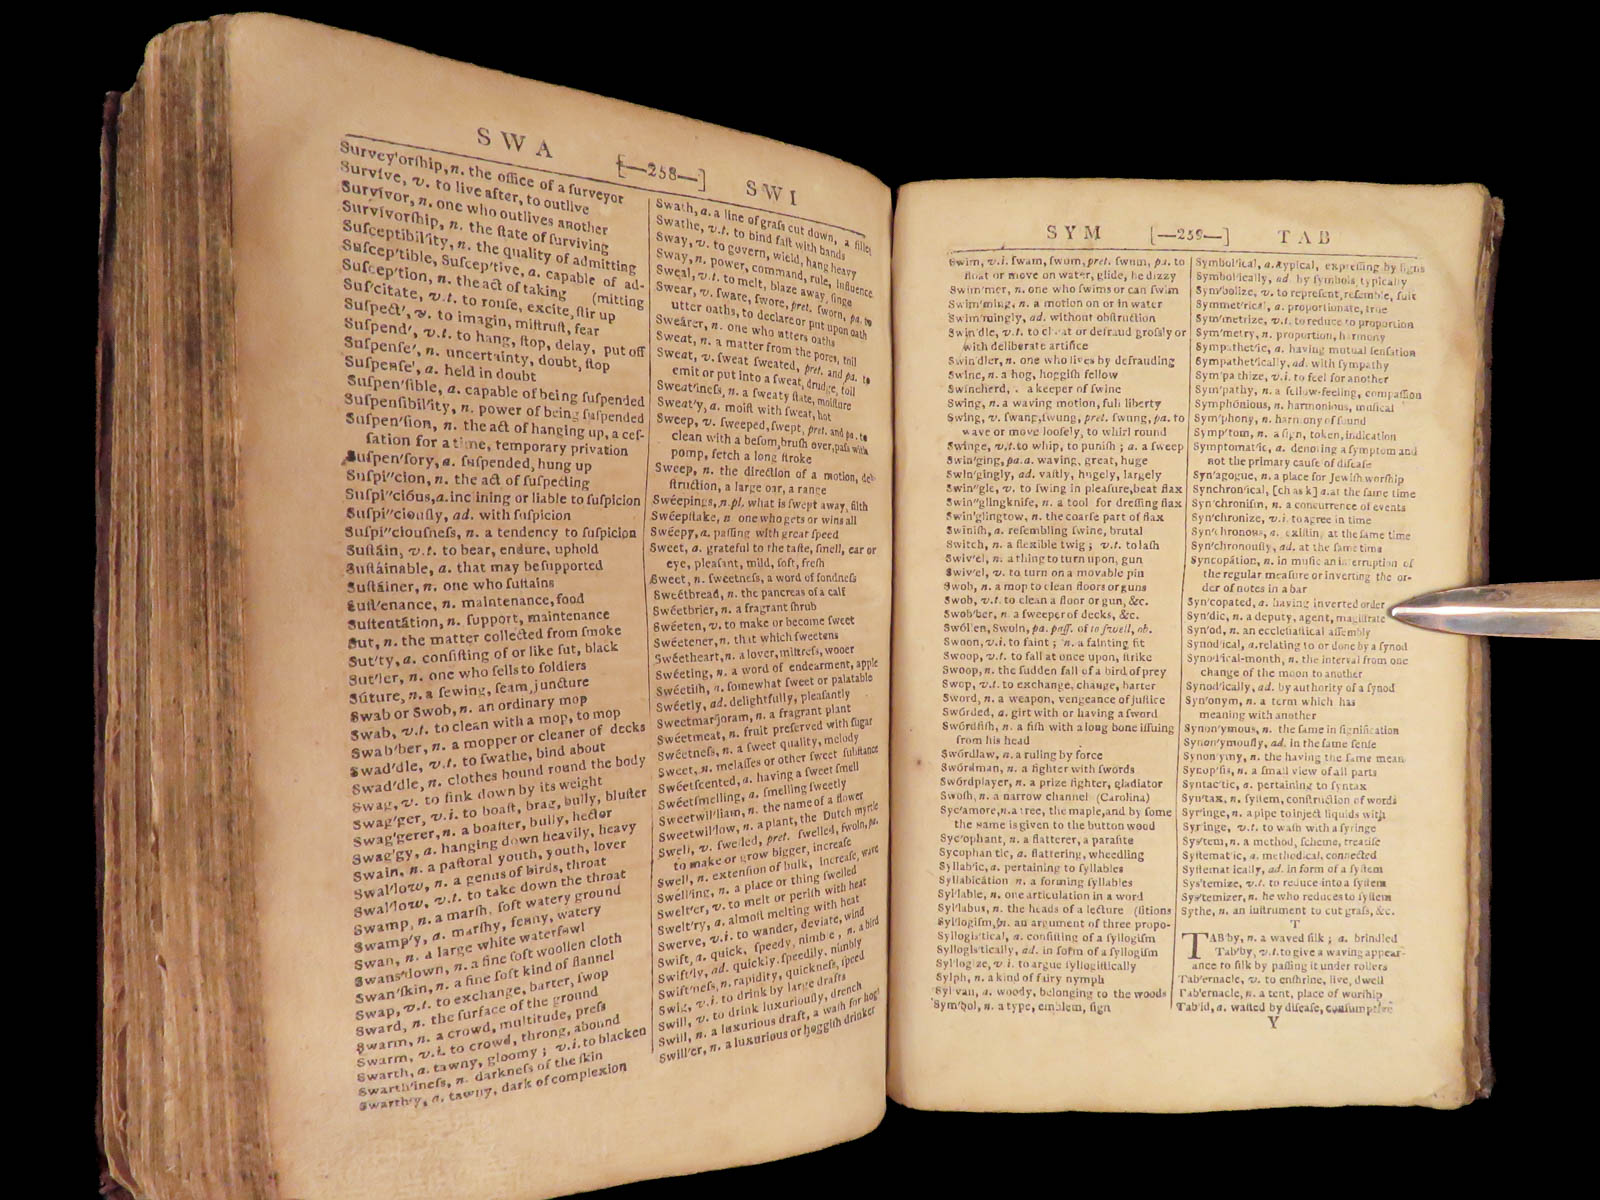 SWA [—258—] SWI
Survey'orſhip, n. the office of a ſurveyor
Survíve, v. to live after, to outlive
Survívor, n. one who outlives another
Survívorſhip, n. the ſtate of ſurviving
Suſceptibil'ity, n. the quality of admitting
Suſcep'tible, Suſcep'tive, a. capable of ad-
Suſcep'tion, n. the act of taking (mitting
Suſ'citate, v.t. to rouſe, excite, ſtir up
Suſpect', v. to imagin, miſtruſt, fear
Suſpend', v.t. to hang, ſtop, delay, put off
Suſpenſe', n. uncertainty, doubt, ſtop
Suſpenſe', a. held in doubt
Suſpen'ſible, a. capable of being ſuſpended
Suſpenſibil'ity, n. power of being ſuſpended
Suſpen'ſion, n. the act of hanging up, a ceſ-
ſation for a time, temporary privation
Suſpen'ſory, a. ſuſpended, hung up
Suſpi"cion, n. the act of ſuſpecting
Suſpi"cióus, a. inclining or liable to ſuſpicion
Suſpi"ciouſly, ad. with ſuſpicion
Suſpi"ciouſneſs, n. a tendency to ſuſpicion
Suſtáin, v.t. to bear, endure, uphold
Suſtáinable, a. that may be ſupported
Suſtáiner, n. one who ſuſtains
Suſt'enance, n. maintenance, food
Suſtentátion, n. ſupport, maintenance
Sut, n. the matter collected from ſmoke
Sut'ty, a. conſiſting of or like ſut, black
Sut'ler, n. one who ſells to ſoldiers
Súture, n. a ſewing, ſeam, juncture
Swab or Swob, n. an ordinary mop
Swab, v.t. to clean with a mop, to mop
Swab'ber, n. a mopper or cleaner of decks
Swad'dle, v.t. to ſwathe, bind about
Swad'dle, n. clothes bound round the body
Swag, v. to ſink down by its weight
Swag'ger, v.i. to boaſt, brag, bully, bluſter
Swag'gerer, n. a boaſter, bully, hector
Swag'gy, a. hanging down heavily, heavy
Swain, n. a paſtoral youth, youth, lover
Swal'low, n. a genus of birds, throat
Swal'low, v.t. to take down the throat
Swamp, n. a marſh, ſoft watery ground
Swamp'y, a. marſhy, fenny, watery
Swan, n. a large white waterfowl
Swans'down, n. a fine ſoft woollen cloth
Swan'ſkin, n. a fine ſoft kind of flannel
Swap, v.t. to exchange, barter, ſwop
Sward, n. the ſurface of the ground
Swarm, n. a crowd, multitude, preſs
Swarm, v.i. to crowd, throng, abound
Swarth, a. tawny, gloomy; v.i. to blacken
Swarth'ineſs, n. darkneſs of the ſkin
Swarth'y, a. tawny, dark of complexion
Swath, a. a line of graſs cut down, a fillet
Swathe, v.t. to bind faſt with bands
Sway, v. to govern, wield, hang heavy
Sway, n. power, command, rule, influence
Sweal, v.t. to melt, blaze away, ſinge
Swear, v. ſware, ſwore, pret. ſworn, pa. to
utter oaths, to declare or put upon oath
Sweárer, n. one who utters oaths
Sweat, n. a matter from the pores, toil
Sweat, v. ſweat ſweated, pret. and pa. to
emit or put into a ſweat, drudge, toil
Sweat'ineſs, n. a ſweaty ſtate, moiſture
Sweat'y, a. moiſt with ſweat, hot
Sweep, v. ſweeped, ſwept, pret. and pa. to
clean with a beſom, bruſh over, paſs with
pomp, fetch a long ſtroke
Sweep, n. the direction of a motion, de-
ſtruction, a large oar, a range
Swéepings, n.pl. what is ſwept away, filth
Swéepſtake, n one who gets or wins all
Swéepy, a. paſſing with great ſpeed
Sweet, a. grateful to the taſte, ſmell, ear or
eye, pleaſant, mild, ſoft, freſh
Sweet, n. ſweetneſs, a word of fondneſs
Swéetbread, n. the pancreas of a calf
Swéetbrier, n. a fragrant ſhrub
Swéeten, v. to make or become ſweet
Swéetener, n. that which ſweetens
Swéetheart, n. a lover, miſtreſs, wooer
Swéeting, n. a word of endearment, apple
Swéetiſh, a. ſomewhat ſweet or palatable
Swéetly, ad. delightfully, pleaſantly
Sweetmar'joram, n. a fragrant plant
Swéetmeat, n. fruit preſerved with ſugar
Swéetneſs, n. a ſweet quality, melody
Sweet, n. melaſſes or other ſweet ſubſtance
Swéetſcented, a. having a ſweet ſmell
Swéetſmelling, a. ſmelling ſweetly
Sweetwil'liam, n. the name of a flower
Sweetwil'low, n. a plant, the Dutch myrtle
Swell, v. ſwelled, pret. ſwelled, ſwoln, pa.
to make or grow bigger, increaſe
Swell, n. extenſion of bulk, increaſe, wave
Swell'ing, n. a place or thing ſwelled
Swelt'er, v. to melt or periſh with heat
Swelt'ry, a. almoſt melting with heat
Swerve, v.i. to wander, deviate, wind
Swift, a. quick, ſpeedy, nimble, n. a bird
Swift'ly, ad. quickly, ſpeedily, nimbly
Swift'neſs, n. rapidity, quickneſs, ſpeed
Swig, v.i. to drink by large drafts
Swill, v. to drink luxuriouſly, drench
Swill, n. a luxurious draft, a waſh for hogs
Swill'er, n. a luxurious or hoggiſh drinker
SYM [—259—] TAB
Swim, v.i. ſwam, ſwom, pret. ſwum, pa. to
float or move on water, glide, be dizzy
Swim'mer, n. one who ſwims or can ſwim
Swim'ming, n. a motion on or in water
Swim'mingly, ad. without obſtruction
Swin'dle, v.t. to cheat or defraud groſsly or
with deliberate artifice
Swin'dler, n. one who lives by defrauding
Swine, n. a hog, hoggiſh fellow
Swineherd, . a keeper of ſwine
Swing, n. a waving motion, full liberty
Swing, v. ſwang, ſwung, pret. ſwung, pa. to
wave or move looſely, to whirl round
Swinge, v.t. to whip, to puniſh; a. a ſweep
Swin'ging, pa.a. waving, great, huge
Swin'gingly, ad. vaſtly, hugely, largely
Swin"gle, v. to ſwing in pleaſure, beat flax
Swin"glingknife, n. a tool for dreſſing flax
Swin'glingtow, n. the coarſe part of flax
Swiniſh, a. reſembling ſwine, brutal
Switch, n. a flexible twig; v.t. to laſh
Swiv'el, n. a thing to turn upon, gun
Swiv'el, v. to turn on a movable pin
Swob, n. a mop to clean floors or guns
Swob, v.t. to clean a floor or gun, &c.
Swob'ber, n. a ſweeper of decks, &c.
Swóllen, Swoln, pa. paſſ. of to ſwell, ob.
Swoon, v.i. to faint; n. a fainting fit
Swoop, v.t. to fall at once upon, ſtrike
Swoop, n. the ſudden fall of a bird of prey
Swop, v.t. to exchange, change, barter
Sword, n. a weapon, vengeance of juſtice
Swórded, a. girt with or having a ſword
Swórdfiſh, n. a fiſh with a long bone iſſuing
from his head
Swórdlaw, n. a ruling by force
Swórdman, n. a fighter with ſwords
Swórdplayer, n. a prize fighter, gladiator
Swoſh, n. a narrow channel (Carolina)
Syc'amore, n. a tree, the maple, and by ſome
the name is given to the button wood
Syc'ophant, n. a flatterer, a paraſite
Sycophan'tic, a. flattering, wheedling
Syllab'ic, a. pertaining to ſyllables
Syllabicátion n. a forming ſyllables
Syl'lable, n. one articulation in a word
Syl'labus, n. the heads of a lecture (ſitions
Syl'logiſm, n. an argument of three propo-
Syllogis'tical, a. conſiſting of a ſyllogiſm
Syllogis'tically, ad. in form of a ſyllogiſm
Syl'logize, v i. to argue ſyllogiſtically
Sylph, n. a kind of fairy nymph
Syl'van, a. woody, belonging to the woods
Sym'bol, n. a type, emblem, ſign
Symbol'ical, a. typical, expreſſing by ſigns
Symbol'ically, ad. by ſymbols, typically
Sym'bolize, v. to repreſent, reſemble, ſuit
Symmet'rical, a. proportionate, true
Sym'metrize, v.t. to reduce to proportion
Sym'metry, n. proportion, harmony
Sympathet'ic, a. having mutual ſenſation
Sympathet'ically, ad. with ſympathy
Sym'pathize, v.i. to feel for another
Sym'pathy, n. a fellow-feeling, compaſſion
Symphónious, n. harmonious, muſical
Sym'phony, n. harmony of ſound
Symp'tom, n. a ſign, token, indication
Symptomat'ic, a. denoting a ſymptom and
not the primary cauſe of diſeaſe
Syn'agogue, n. a place for Jewiſh worſhip
Synchron'ical, [ch as k] a. at the ſame time
Syn'chroniſm, n. a concurrence of events
Syn'chronize, v.i. to agree in time
Syn'chronous, a. exiſting at the ſame time
Syn'chronouſly, ad. at the ſame time
Syncopátion, n. in muſic an interruption of
the regular meaſure or inverting the or-
der of notes in a bar
Syn'copated, a. having inverted order
Syn'dic, n. a deputy, agent, magiſtrate
Syn'od, n. an eccleſiaſtical aſſembly
Synod'ical, a. relating to or done by a ſynod
Synod'ical-month, n. the interval from one
change of the moon to another
Synod'ically, ad. by authority of a ſynod
Syn'onym, n. a term which has
meaning with another
Synon'ymous, n. the ſame in ſignification
Synon'ymouſly, ad. in the ſame ſenſe
Synon'ymy, n. the having the ſame mean
Synop'ſis, n. a ſmall view of all parts
Syntac'tic, a. pertaining to ſyntax
Syn'tax, n. ſyſtem, conſtruction of words
Syr'inge, n. a pipe to inject liquids with
Syr'inge, v.t. to waſh with a ſyringe
Sys'tem, n. a method, ſcheme, treatiſe
Syſtemat'ic, a. methodical, connected
Syſtemat'ically, ad. in form of a ſyſtem
Sys'temize, v.t. to reduce into a ſyſtem
Sys'temizer, n. he who reduces to ſyſtem
Sythe, n. an inſtrument to cut graſs, &c.
T
TAB'by, n. a waved ſilk; a. brindled
Tab'by, v.t. to give a waving appear-
ance to ſilk by paſſing it under rollers
Tab'ernacle, v. to enſhrine, live, dwell
Tab'ernacle, n. a tent, place of worſhip
Tab'id, a. waſted by diſeaſe, conſumptive
Y